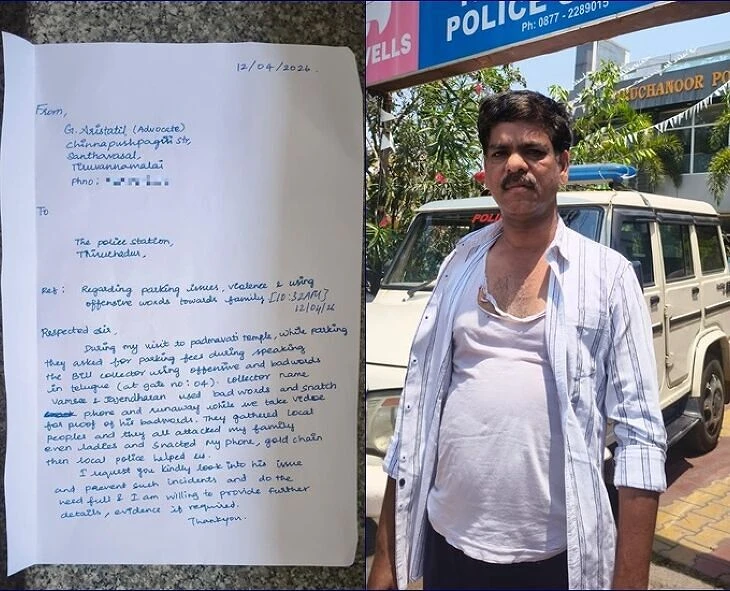 12/04/2026.
From,
G. Aristatil (Advocate)
Chinnapushpagiri Str,
Santhavasal,
Tiruvannamalai
Phno:
To
The police station,
Thiruchadur,
Ref: Regarding parking issues, violence & using
offensive words towards family [10:32AM]
12/04/26
Respected sir,
During my visit to padmavati temple, while parking
they asked for parking fees during speaking
the Bill collector using offensive and badwords
in telugue (at gate no: 04). collector name
vamsee & Jayendharan used bad words and snatch
phone and runaway while we take vedeo
for proof of his badwords. They gathered local
peoples and they all attacked my family
even ladies and snacted my phone, gold chain
then local police helped us.
I request you kindly look into his issue
and prevent such incidents and do the
need full & I am willing to provide further
details, evidence if required.
Thankyou.
WELLS
POLICE
Ph: 0877-2289015
UCHANOOR PO
POLI